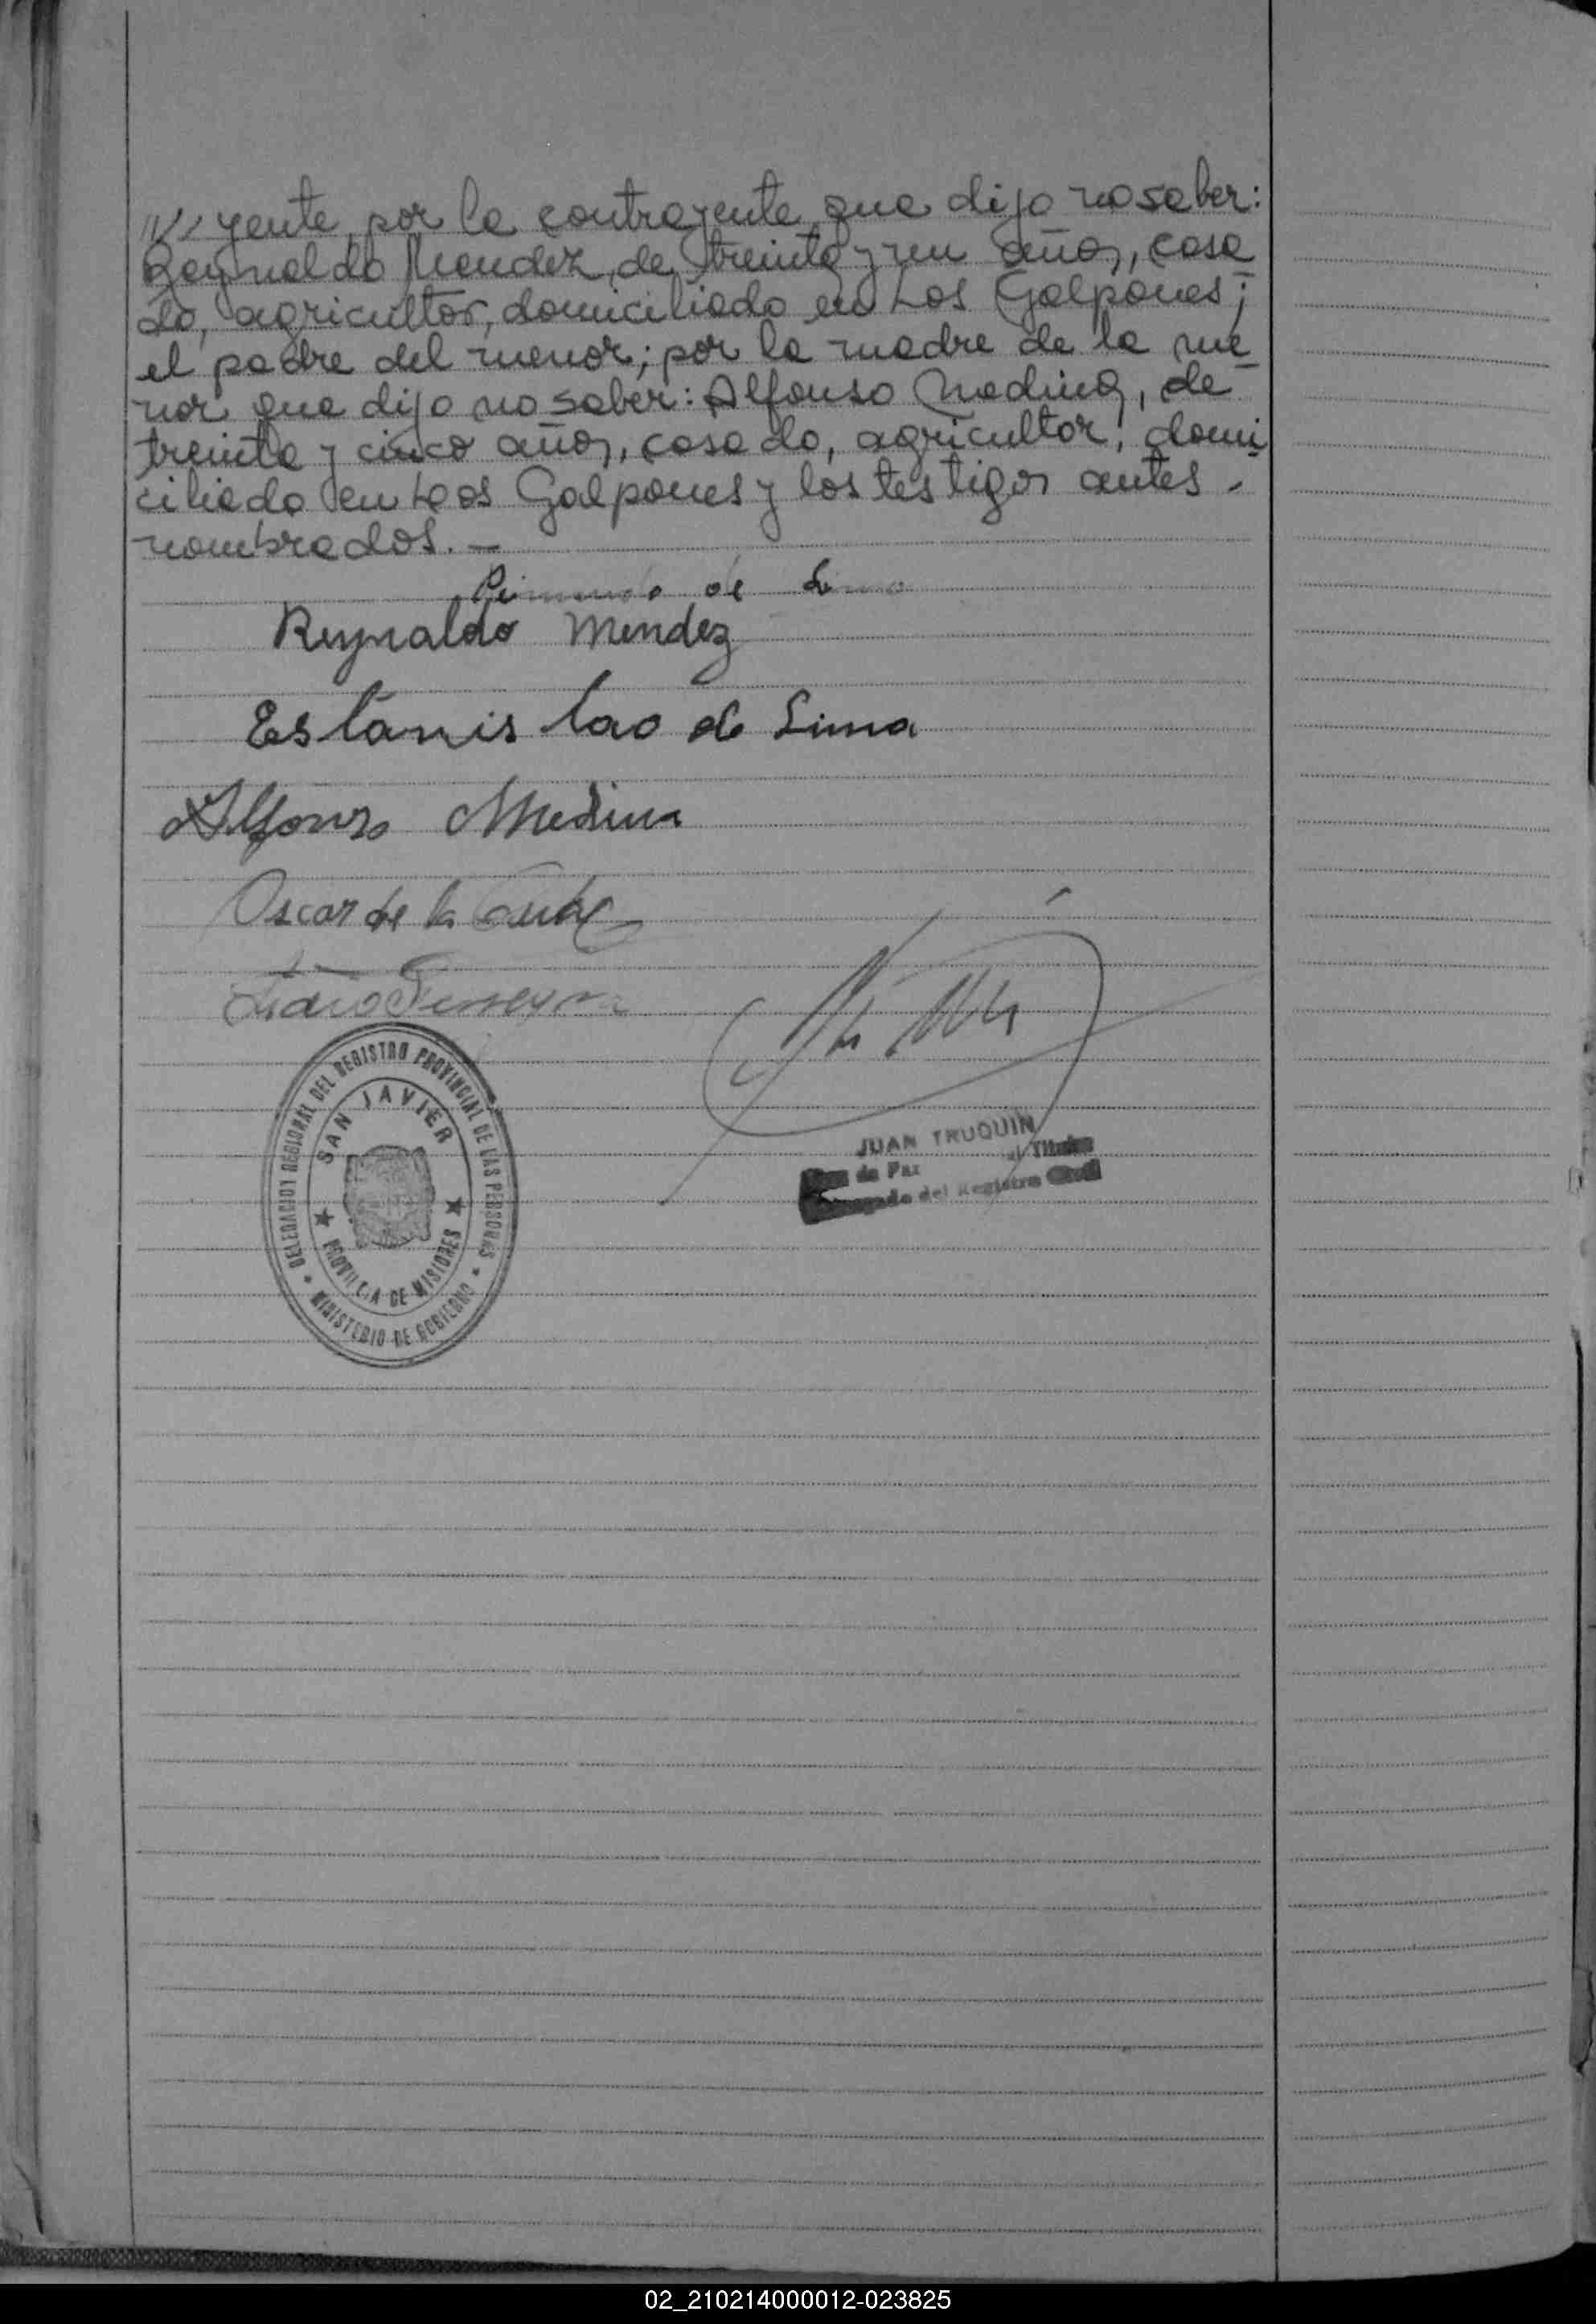 ///yente, por la contrayente que dijo no saber:
Reynaldo Mendez, de treinta y un años, casa
do, agricultor, domiciliado en Los Galpones;
el padre del menor; por la madre de la me
nor que dijo no saber: Alfonso Medina, de
treinta y cinco años, casado, agricultor, domi
ciliado en Los Galpones y los testigos antes
nombrados.—
de Lima
Reynaldo Mendez
Estanislao de Lima
Alfonso Medina
Oscar de la
Ferreyra
DELEGACION REGIONAL DEL REGISTRO PROVINCIAL DE LAS PERSONAS
SAN JAVIER
PROVINCIA DE MISIONES
MINISTERIO DE GOBIERNO
JUAN TRUQUIN
Juez de Paz Titular
Encargado del Registro Civil
02_210214000012-023825